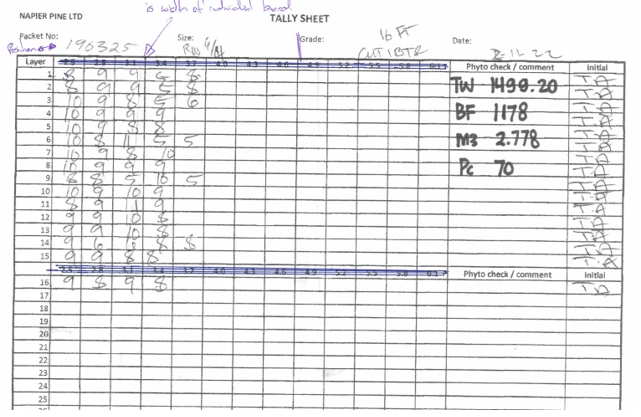 is width of individual board
NAPIER PINE LTD TALLY SHEET
Packet No: 190325 Size: Grade: 16 FT Date: 2-12-22
Layer 2.5 2.8 3.1 3.4 3.7 4.0 4.3 4.6 4.9 5.2 5.5 5.8 6.1 Phyto check / comment Initial
1 8 9 9 5 8 TW 1499.20
2 8 9 9 5 8
3 10 9 8 5 6 BF 1178
4 10 9 9 9
5 10 9 8 8 M3 2.778
6 10 8 11 5 5
7 10 9 8 10 Pc 70
8 10 9 9 9
9 8 8 5 10 5
10 10 9 10 9
11 8 9 11 9
12 9 9 10 8
13 9 9 10 8
14 9 6 6 8 8
15 9 9 8 8
2.5 2.8 3.1 3.4 3.7 4.0 4.3 4.6 4.9 5.2 5.5 5.8 6.1 Phyto check / comment Initial
16 9 8 9 8
17
18
19
20
21
22
23
24
25